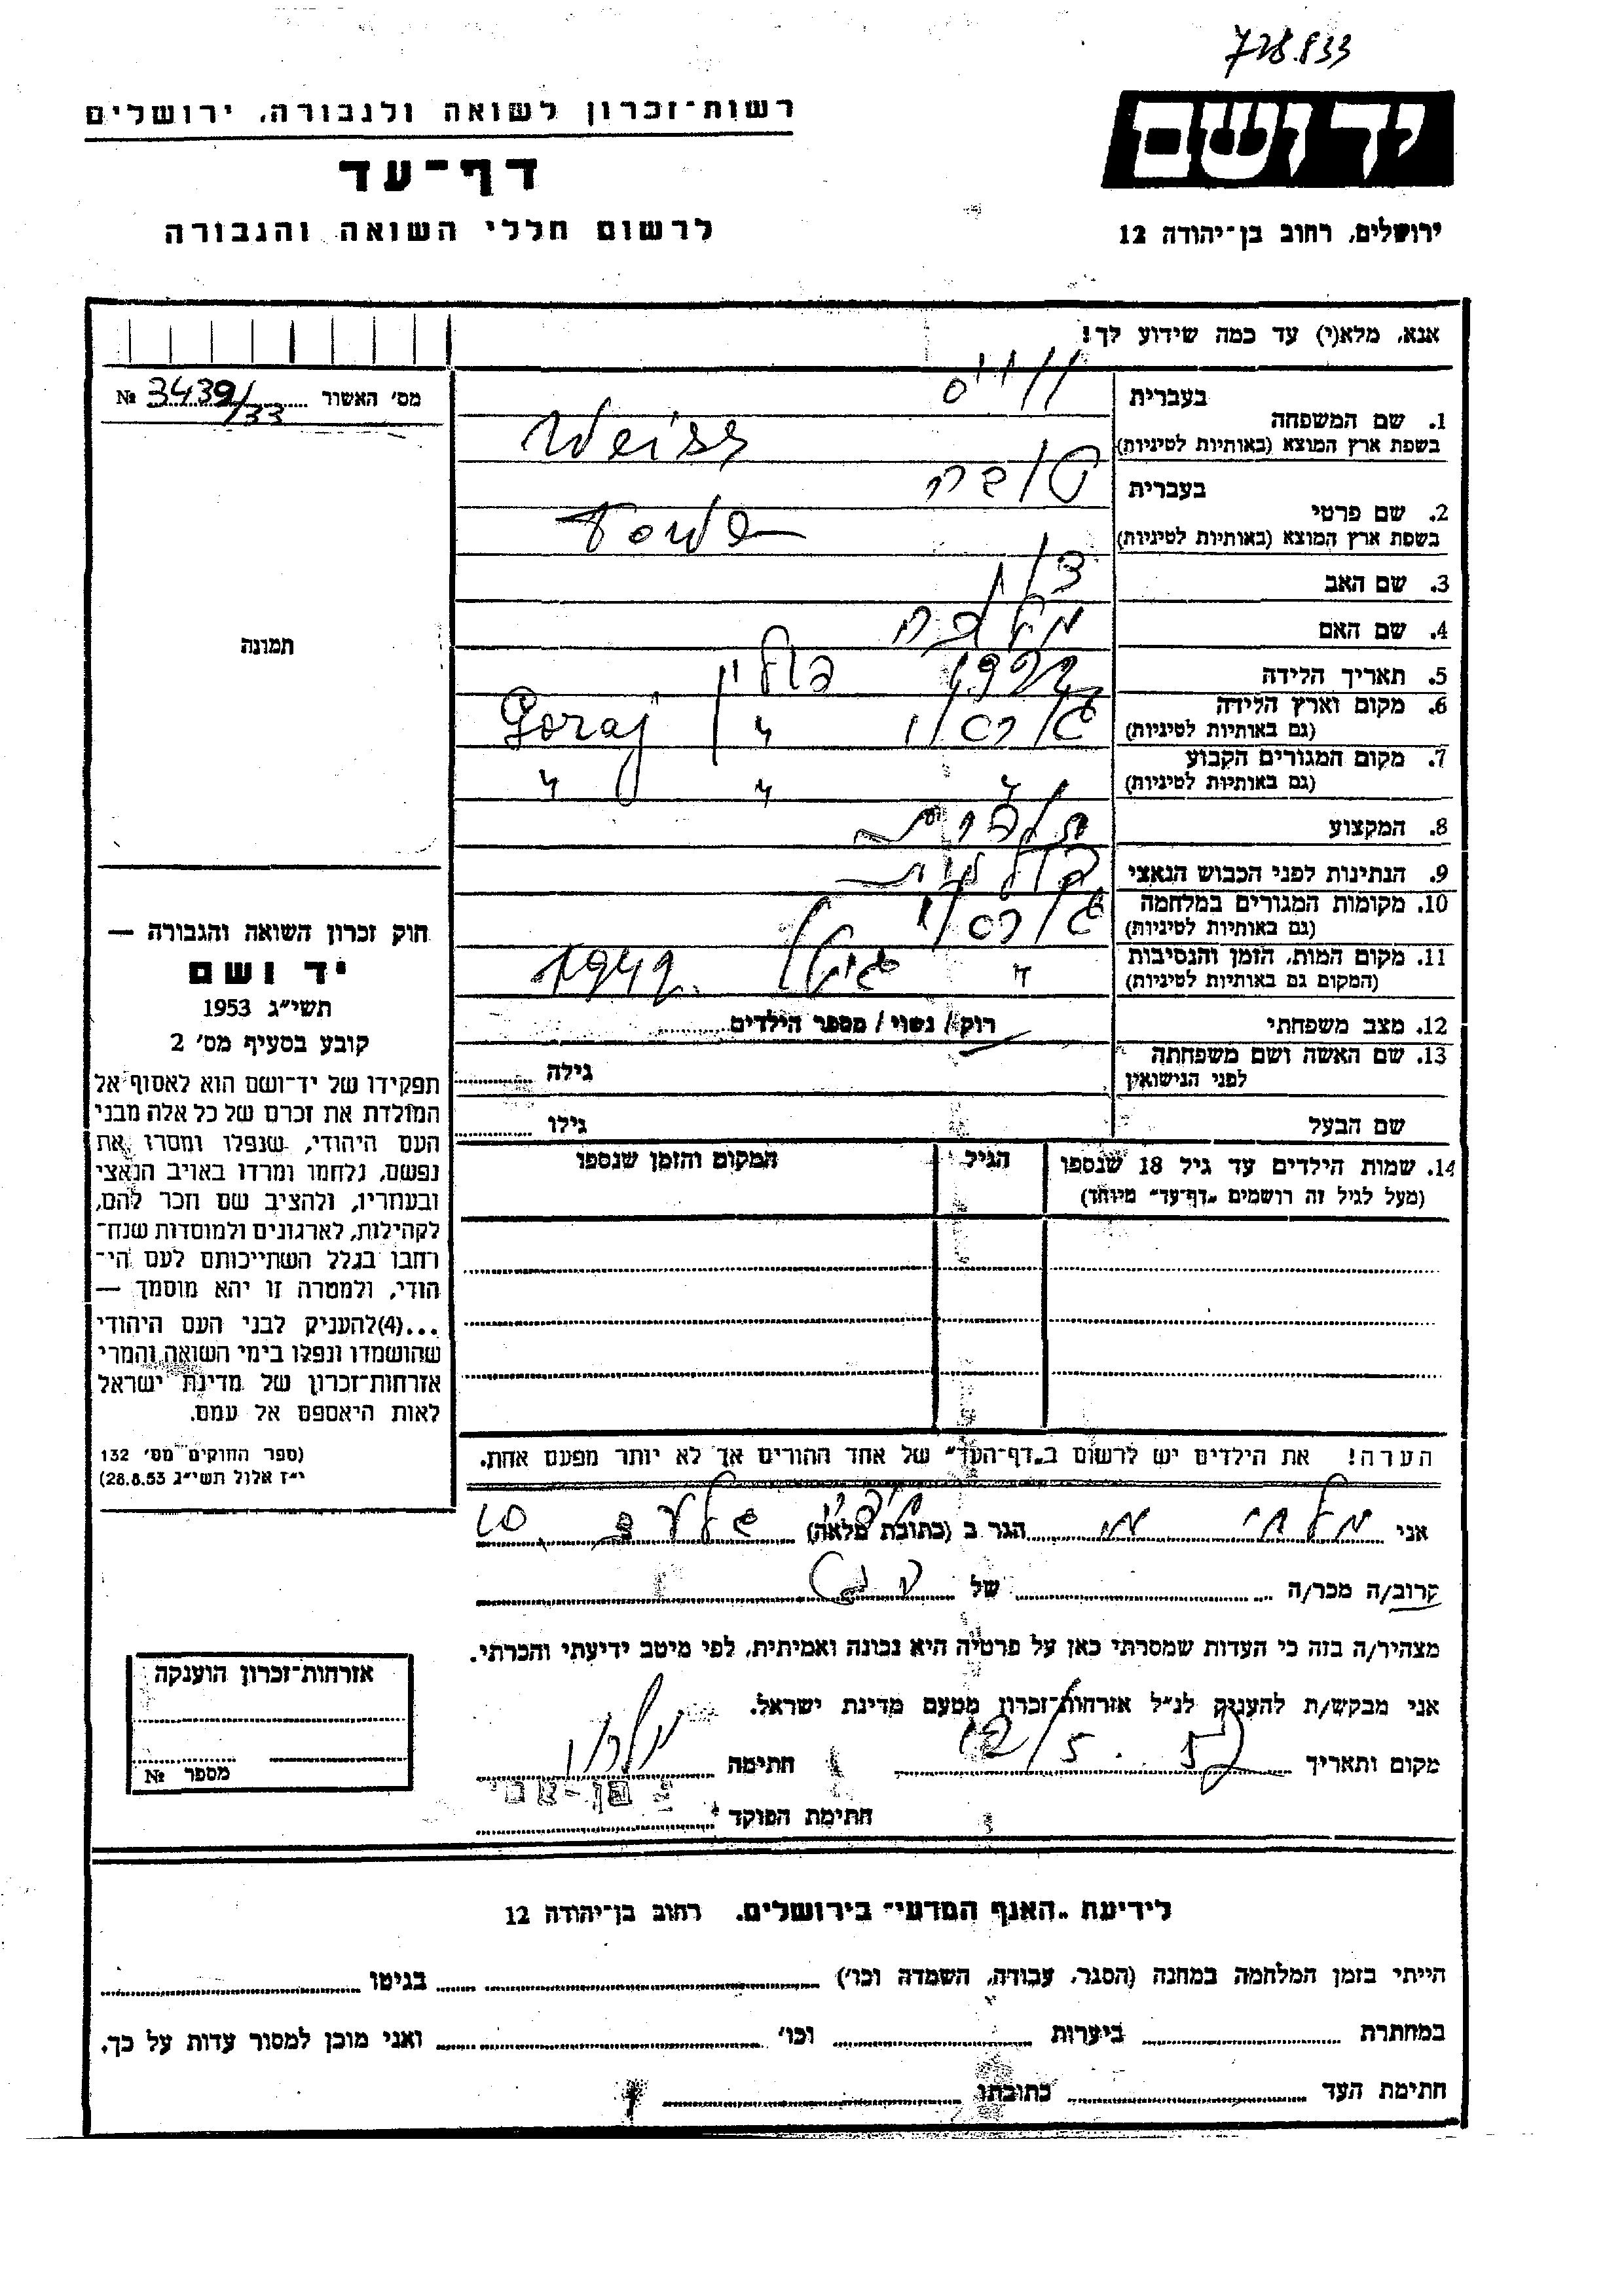 728.833
רשות-זכרון לשואה ולגבורה, ירושלים
דף-עד
לרשום חללי השואה והגבורה
יד ושם
ירושלים, רחוב בן-יהודה 12
אנא, מלא(י) עד כמה שידוע לך!
מס' האשור № 3439/33
תמונה
בעברית ווייס
1. שם המשפחה
בשפת ארץ המוצא (באותיות לטיניות) Weiss
בעברית טובה
2. שם פרטי
בשפת ארץ המוצא (באותיות לטיניות) Towa
3. שם האב
4. שם האם מלכה
5. תאריך הלידה 1922 פולין
6. מקום וארץ הלידה
(גם באותיות לטיניות) גוראי " Goraj
7. מקום המגורים הקבוע
(גם באותיות לטיניות) " " "
8. המקצוע
9. הנתינות לפני הכבוש הנאצי פולנית
10. מקומות המגורים במלחמה
(גם באותיות לטיניות) גוראי
11. מקום המות, הזמן והנסיבות
(המקום גם באותיות לטיניות) " 1942
12. מצב משפחתי רוק/ נשוי/ מספר הילדים
13. שם האשה ושם משפחתה
לפני הנישואין גילה
שם הבעל גילו
14. שמות הילדים עד גיל 18 שנספו הגיל המקום והזמן שנספו
(מעל לגיל זה רושמים "דף-עד" מיוחד)
הערה! את הילדים יש לרשום ב"דף-העד" של אחד ההורים אך לא יותר מפעם אחת.
חוק זכרון השואה והגבורה —
יד ושם
תשי"ג 1953
קובע בסעיף מס' 2
תפקידו של יד-ושם הוא לאסוף אל
המולדת את זכרם של כל אלה מבני
העם היהודי, שנפלו ומסרו את
נפשם, נלחמו ומרדו באויב הנאצי
ובעוזריו, ולהציב שם וזכר להם,
לקהילות, לארגונים ולמוסדות שנח-
רבו בגלל השתייכותם לעם הי-
הודי, ולמטרה זו יהא מוסמך —
...(4)להעניק לבני העם היהודי
שהושמדו ונפלו בימי השואה והמרי
אזרחות-זכרון של מדינת ישראל
לאות היאספם אל עמם.
(ספר החוקים מס' 132
י"ז אלול תשי"ג 28.8.53)
אני הגר ב (כתובת מלאה)
קרוב/ה מכר/ה של
מצהיר/ה בזה כי העדות שמסרתי כאן על פרטיה היא נכונה ואמיתית, לפי מיטב ידיעתי והכרתי.
אני מבקש/ת להעניק לנ"ל אזרחות-זכרון מטעם מדינת ישראל.
מקום ותאריך חתימה
חתימת הפוקד
אזרחות-זכרון הוענקה
מספר №
לידיעת "האגף המדעי" בירושלים, רחוב בן-יהודה 12
הייתי בזמן המלחמה במחנה (הסגר, עבודה, השמדה וכו') בגיטו
במחתרת ביערות וכו' ואני מוכן למסור עדות על כך.
חתימת העד כתובתו